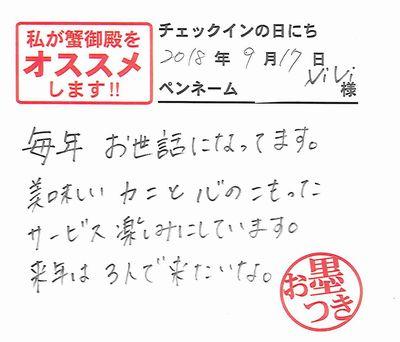 私が蟹御殿を
オススメ
します!!
チェックインの日にち
2018年9月17日
ViVi
ペンネーム 様
毎年 お世話になってます。
美味しい カニと 心のこもった
サービス楽しみにしています。
来年は 3人で来たいな。
お墨つき